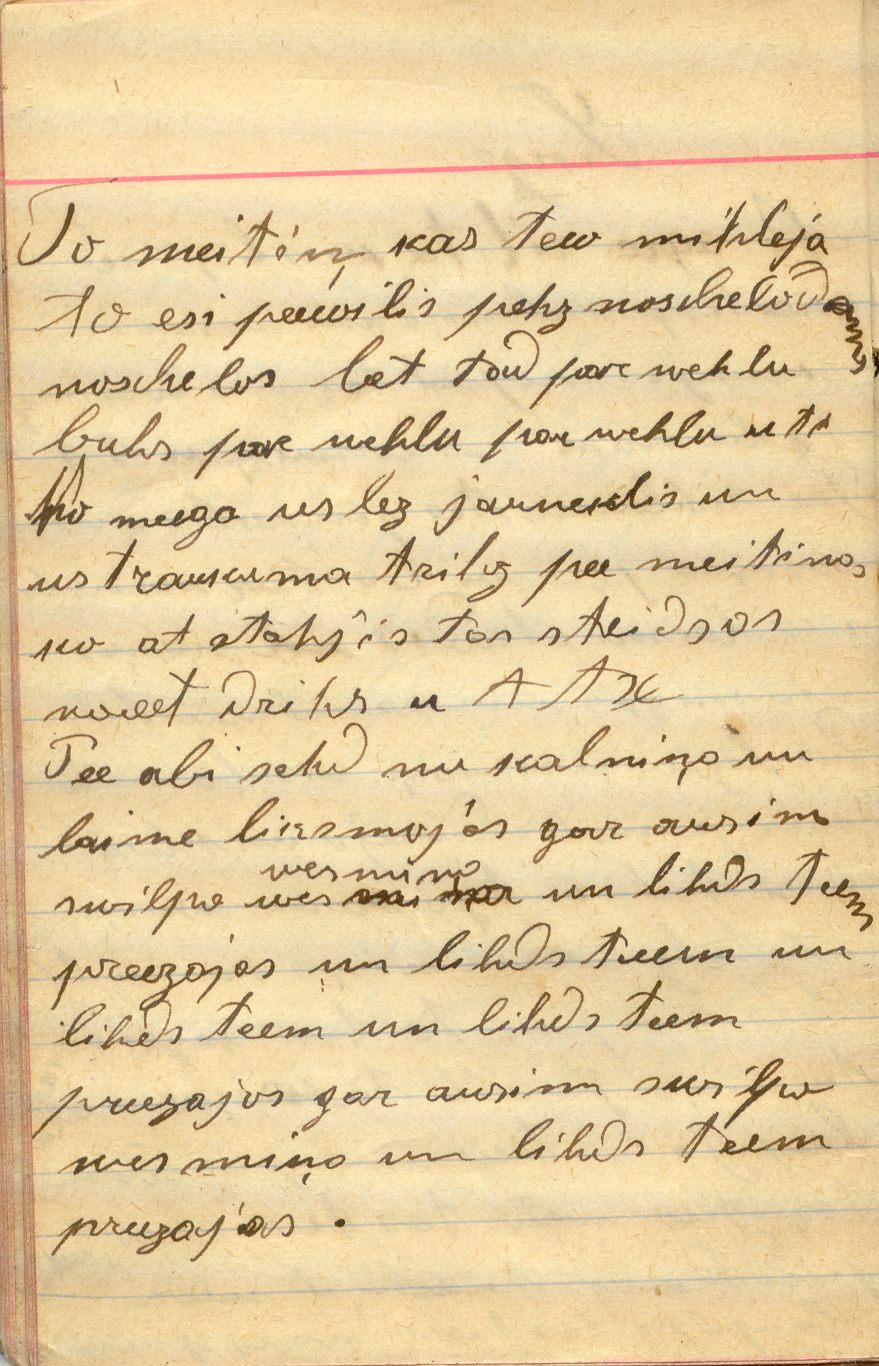 To meitiņ kas tew mihleja
to esi peewilis pehz noschelodams
noschelos bet tad par wehlu
buhs par wehlu par wehlu u tt
No meega us lez jauneklis un
us traukuma trihz pee meitinas
ko at stahjis tas steidsas
kaeet drihs u t t x
Tee abi sehd nu kalniņa un
laime liksmojas gar ausim
swilpo wesmiņa un lihds teem
preezajas un lihds teem un
lihds teem un lihds teem
preezajas gar ausim swilpo
wesmiņa un lihds teem
preezajas .